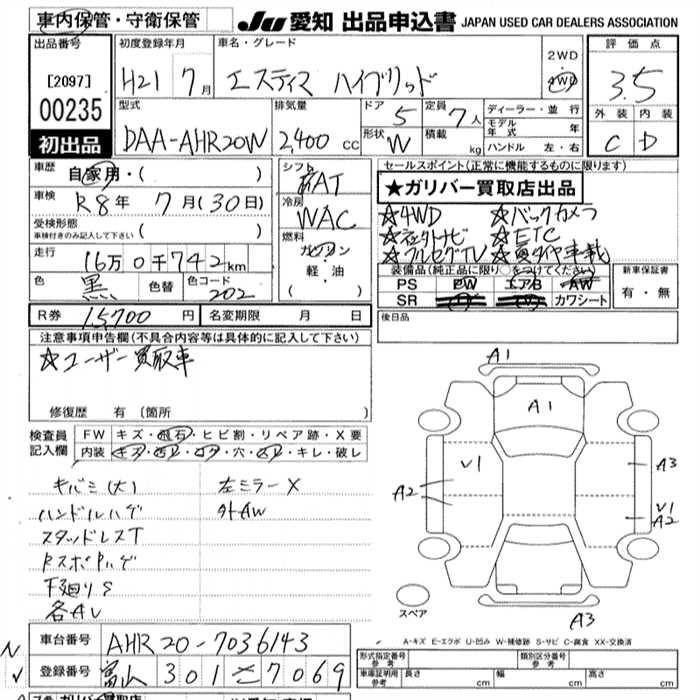 車内保管・守衛保管
JU 愛知 出品申込書 JAPAN USED CAR DEALERS ASSOCIATION
出品番号
[2097]
00235
初出品
初度登録年月
H21 7月
車名・グレード
エスティマ ハイブリッド
2WD
4WD
評価点
3.5
外装 内装
C D
型式
DAA-AHR20W
排気量
2,400 cc
ドア 5
形状 W
定員 7人
積載 kg
ディーラー・並行
モデル年式 年
ハンドル 左・右
車歴 自家用・( )
車検 R8年 7月(30日)
受検形態 ( )
車検付きのみ記入して下さい
走行 16万0千742km
色 黒 色替 色コード 202
シフト AT
冷房 WAC
燃料 ガソリン
軽・油
( )
セールスポイント(正常に機能するものに限ります)
★ガリバー買取店出品
☆4WD ☆バックカメラ
☆ ☆ETC
☆フルセグTV ☆夏タイヤ車載
装備品(純正品に限り○をつけてください)
PS PW エアB AW
SR カワシート
新車保証書
有・無
後日品
R券 15,700円 名変期限 月 日
注意事項申告欄(不具合内容等は具体的に記入して下さい)
☆ユーザー買取車
修復歴 有 〔箇所 〕
検査員記入欄
FW キズ・飛石・ヒビ割・リペア跡・X要
内装 キズ・・コゲ・穴・・キレ・破レ
キバミ(大) 左ミラーX
ハンドルハゲ 外AW
スタッドレスT
RスポPハゲ
下廻りS
各AU
A1
A1
V1
A2
A3
V1
A2
A3
スペア
A-キズ E-エクボ U-凹み W-補修跡 S-サビ C-腐食 XX-交換済
N
✓
車台番号 AHR20-7036143
登録番号 富山 301 そ 7069
形式指定番号
参考
類別区分番号
参考
車庫証明用
参考
長さ cm 幅 cm 高さ cm